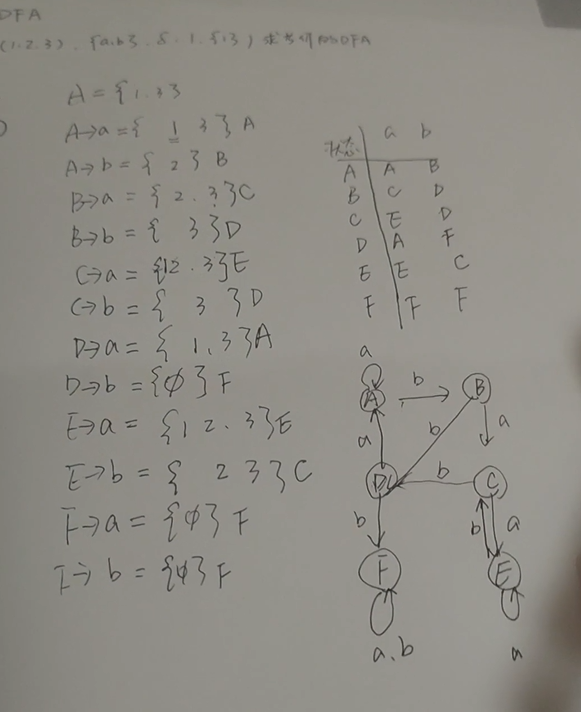 DFA
(1.2.3).{a.b}.δ.1.{1}) 求等价的DFA
A={1.3}
A→a={ 1 3 } A
A→b={ 2 } B
B→a={ 2.3}C
B→b={ 3}D
C→a={12.3}E
C→b={ 3 }D
D→a={ 1,3}A
D→b={φ} F
E→a={1 2.3}E
E→b={ 2 3 } C
F→a={φ} F
F→b={φ} F
状态 a b
A A B
B C D
C E D
D A F
E E C
F F F
a
A b B
a b a
D b C
b b a
F E
a.b a